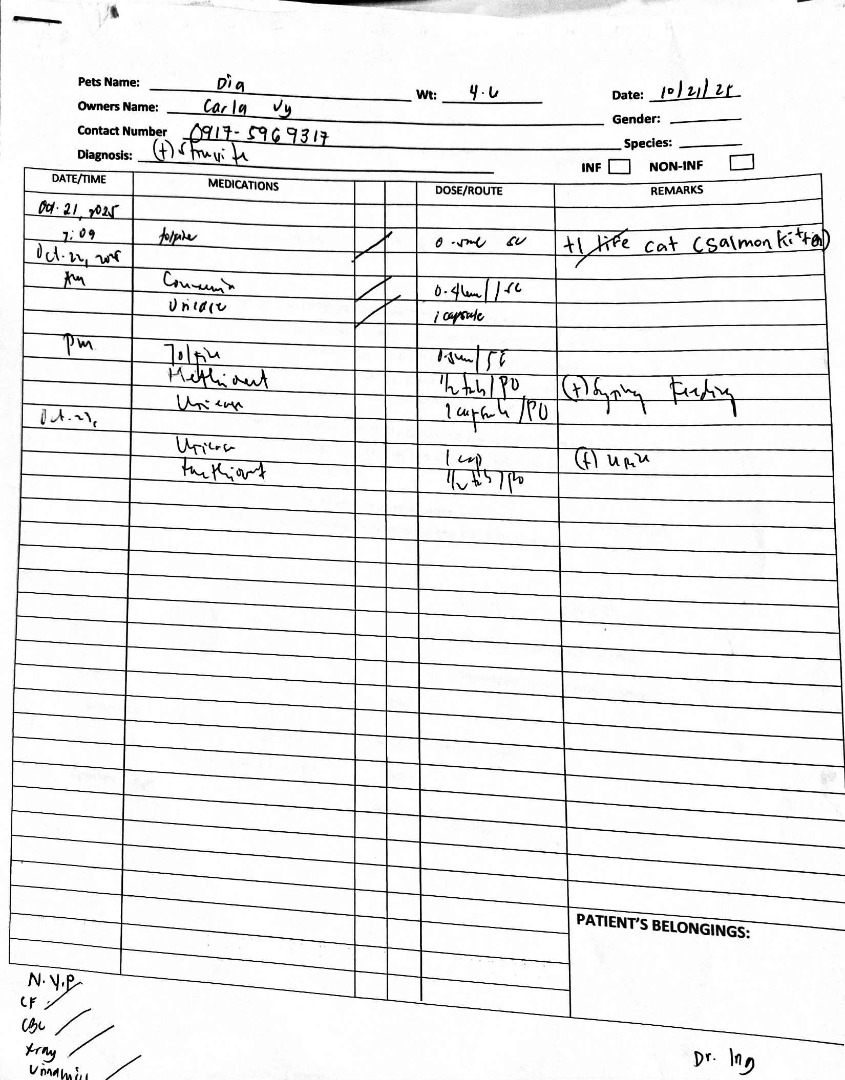 Pets Name: Dia Wt: 4.6 Date: 10/21/25
Owners Name: Carla Uy Gender:
Contact Number 0917-5969317 Species:
Diagnosis: (+) Struvite INF NON-INF
DATE/TIME MEDICATIONS DOSE/ROUTE REMARKS
Oct. 21, 2025
7:09 tolfine 0.5ml SC +1 life cat (salmon kitten)
Oct. 22, 2025
Am SC
Uricare 1 capsule
Pm Tolfine SC
Methiovet 1/2 tab/PO (+) Syring Feeding
Uricare 1 capsule/PO
Oct. 23,
Uricare 1 cap (+) urine
Methiovet 1/2 tab/PO
PATIENT'S BELONGINGS:
N.Y.P
CF
CBC
xray
Dr. Ing